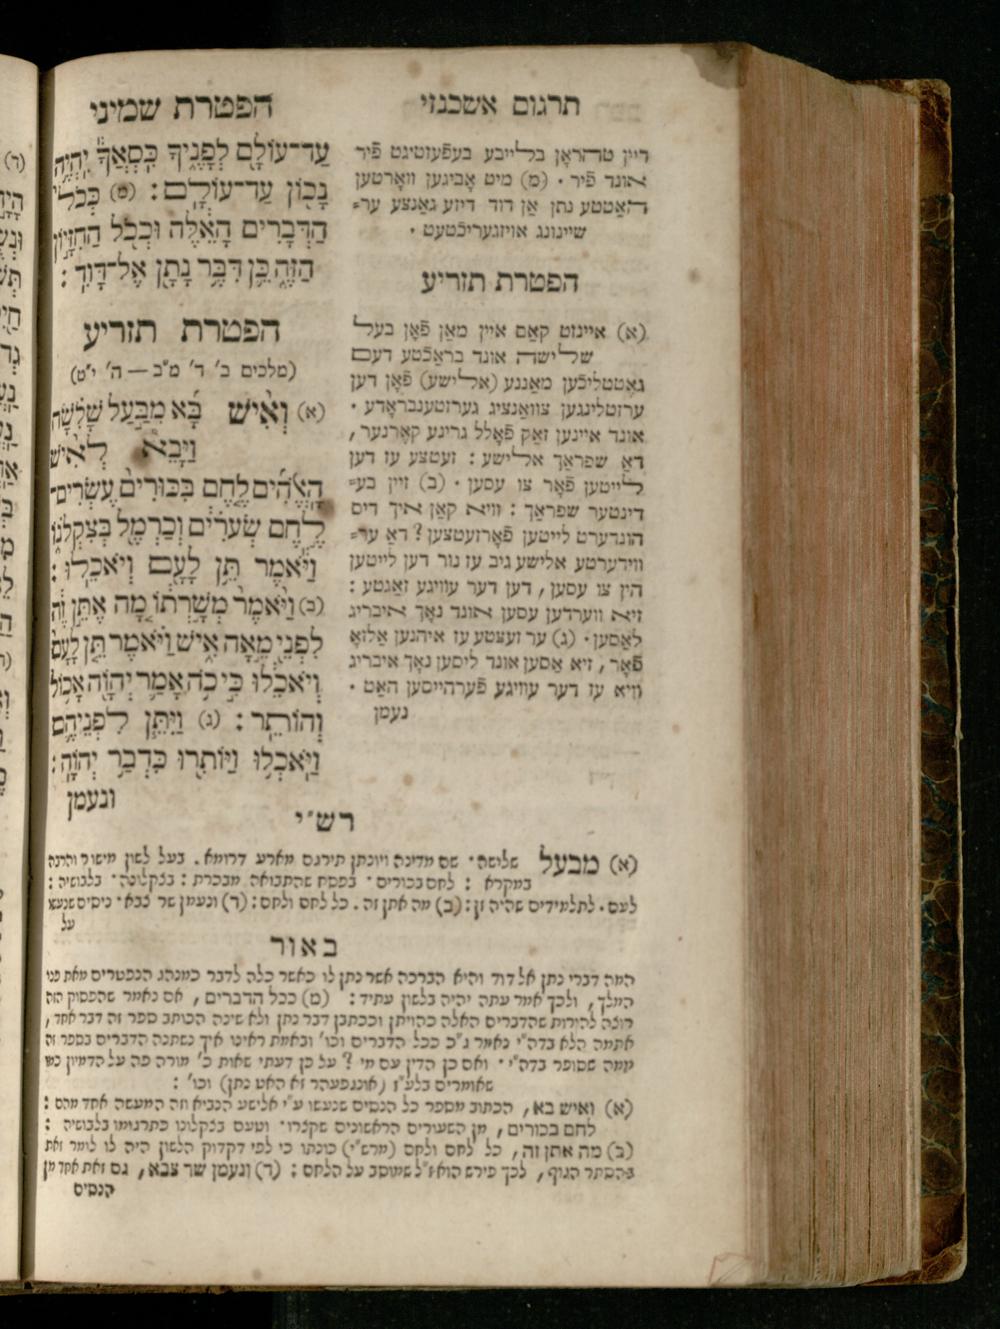 הפטרת שמיני
עַד־עוֹלָם לְפָנֶיךָ כִּסְאֲךָ יִהְיֶה
נָכוֹן עַד־עוֹלָם : (ט) כְּכֹל
הַדְּבָרִים הָאֵלֶּה וּכְכֹל הַחִזָּיוֹן
הַזֶּה כֵּן דִּבֶּר נָתָן אֶל־דָּוִד :
הפטרת תזריע
(מלכים ב' ד' מ"ב — ה' י"ט)
(א) וְאִישׁ בָּא מִבַּעַל שָׁלִשָׁה
וַיָּבֵא לְאִישׁ
הָאֱלֹהִים לֶחֶם בִּכּוּרִים עֶשְׂרִים־
לֶחֶם שְׂעֹרִים וְכַרְמֶל בְּצִקְלֹנוֹ
וַיֹּאמֶר תֵּן לָעָם וְיֹאכֵלוּ :
(ב) וַיֹּאמֶר מְשָׁרְתוֹ מָה אֶתֵּן זֶה
לִפְנֵי מֵאָה אִישׁ וַיֹּאמֶר תֵּן לָעָם
וְיֹאכֵלוּ כִּי כֹה אָמַר יְהוָה אָכוֹל
וְהוֹתֵר : (ג) וַיִּתֵּן לִפְנֵיהֶם
וַיֹּאכְלוּ וַיּוֹתִרוּ כִּדְבַר יְהוָה :
ונעמן
תרגום אשכנזי
דיין טהראָן בלייבע בעפֿעזטיגט פֿיר
אונד פֿיר . (ט) מיט אָביגען וואָרטען
האַטטע נתן אַן דוד דיזע גאַנצע ער=
שיינונג אויזגעריכֿטעט .
הפטרת תזריע
(א) איינזט קאַם איין מאַן פֿאָן בעל
שלישה אונד בראַכֿטע דעם
געטטליכֿען מאַננע (אלישע) פֿאָן דען
ערזטלינגען צוואַנציג גערזטענבראָדע .
אונד איינען זאַק פֿאָלל גרינע קאָרנער,
דאַ שפראַך אלישע : זעטצע עז דען
לייטען פֿאָר צו עסען . (ב) זיין בע=
דינטער שפראַך : וויא קאַן איך דיס
הונדערט לייטען פֿאָרזעטצען? דאַ ער=
ווידערטע אלישע גיב עז נור דען לייטען
הין צו עסען, דען דער עוויגע זאַגטע :
זיא ווערדען עסען אונד נאָך איבריג
לאַסען . (ג) ער זעצטע עז איהנען אַלזאָ
פֿאָר, זיא אַסען אונד ליסען נאָך איבריג
וויא עז דער עוויגע פֿערהייסען האַט .
נעמן
רש"י
(א) מבעל שלישה . שם מדינה ויונתן תירגם מארע דרומא . בעל לשון מישור והרבה
במקרא : לחם בכורים . בפסח שהתבואה מבכרת : בצקלונה . בלבושיה :
לעם . לתלמידים שהיה זן : (ב) מה אתן זה . כל לחם ולחם : (ד) ונעמן שר צבא . ניסים שנעשו
על
באור
המה דברי נתן אל דוד והיא הברכה אשר נתן לו כאשר כלה לדבר כמנהג הנפטרים מאת פני
המלך, ולכך אמר עתה יהיה בלשון עתיד : (ט) ככל הדברים, אם נאמר שהפסוק הזה
רוצה להורות שהדברים האלה כהויתן וככתבן דבר נתן ולא שינה הכותב ספר זה דבר אחד,
אתמה הלא בדה"י נאמר ג"כ ככל הדברים וכו' ובאמת ראינו איך נשתנה הדברים בספר זה
ממה שסופר בדה"י . ואם כן הדין עם מי ? על כן דעתי שאות כ' מורה פה על הדמיון כמו
שאומרים בלע"ז (אונגעפעהר זא האט נתן) וכו' :
(א) ואיש בא, הכתוב מספר כל הנסים שנעשו ע"י אלישע הנביא וזה המעשה אחד מהם :
לחם בכורים, מן השעורים הראשונים שקצרו . וטעם בצקלונו כתרגומו בלבושיה :
(ב) מה אתן זה, כל לחם ולחם (מרש"י) כונתו כי לפי דקדוק הלשון היה לו לומר זאת
בהסתר הגוף, לכך פירש הוא ז"ל שמוסב על הלחם : (ד) ונעמן שר צבא, גם זאת אחד מן
הנסים